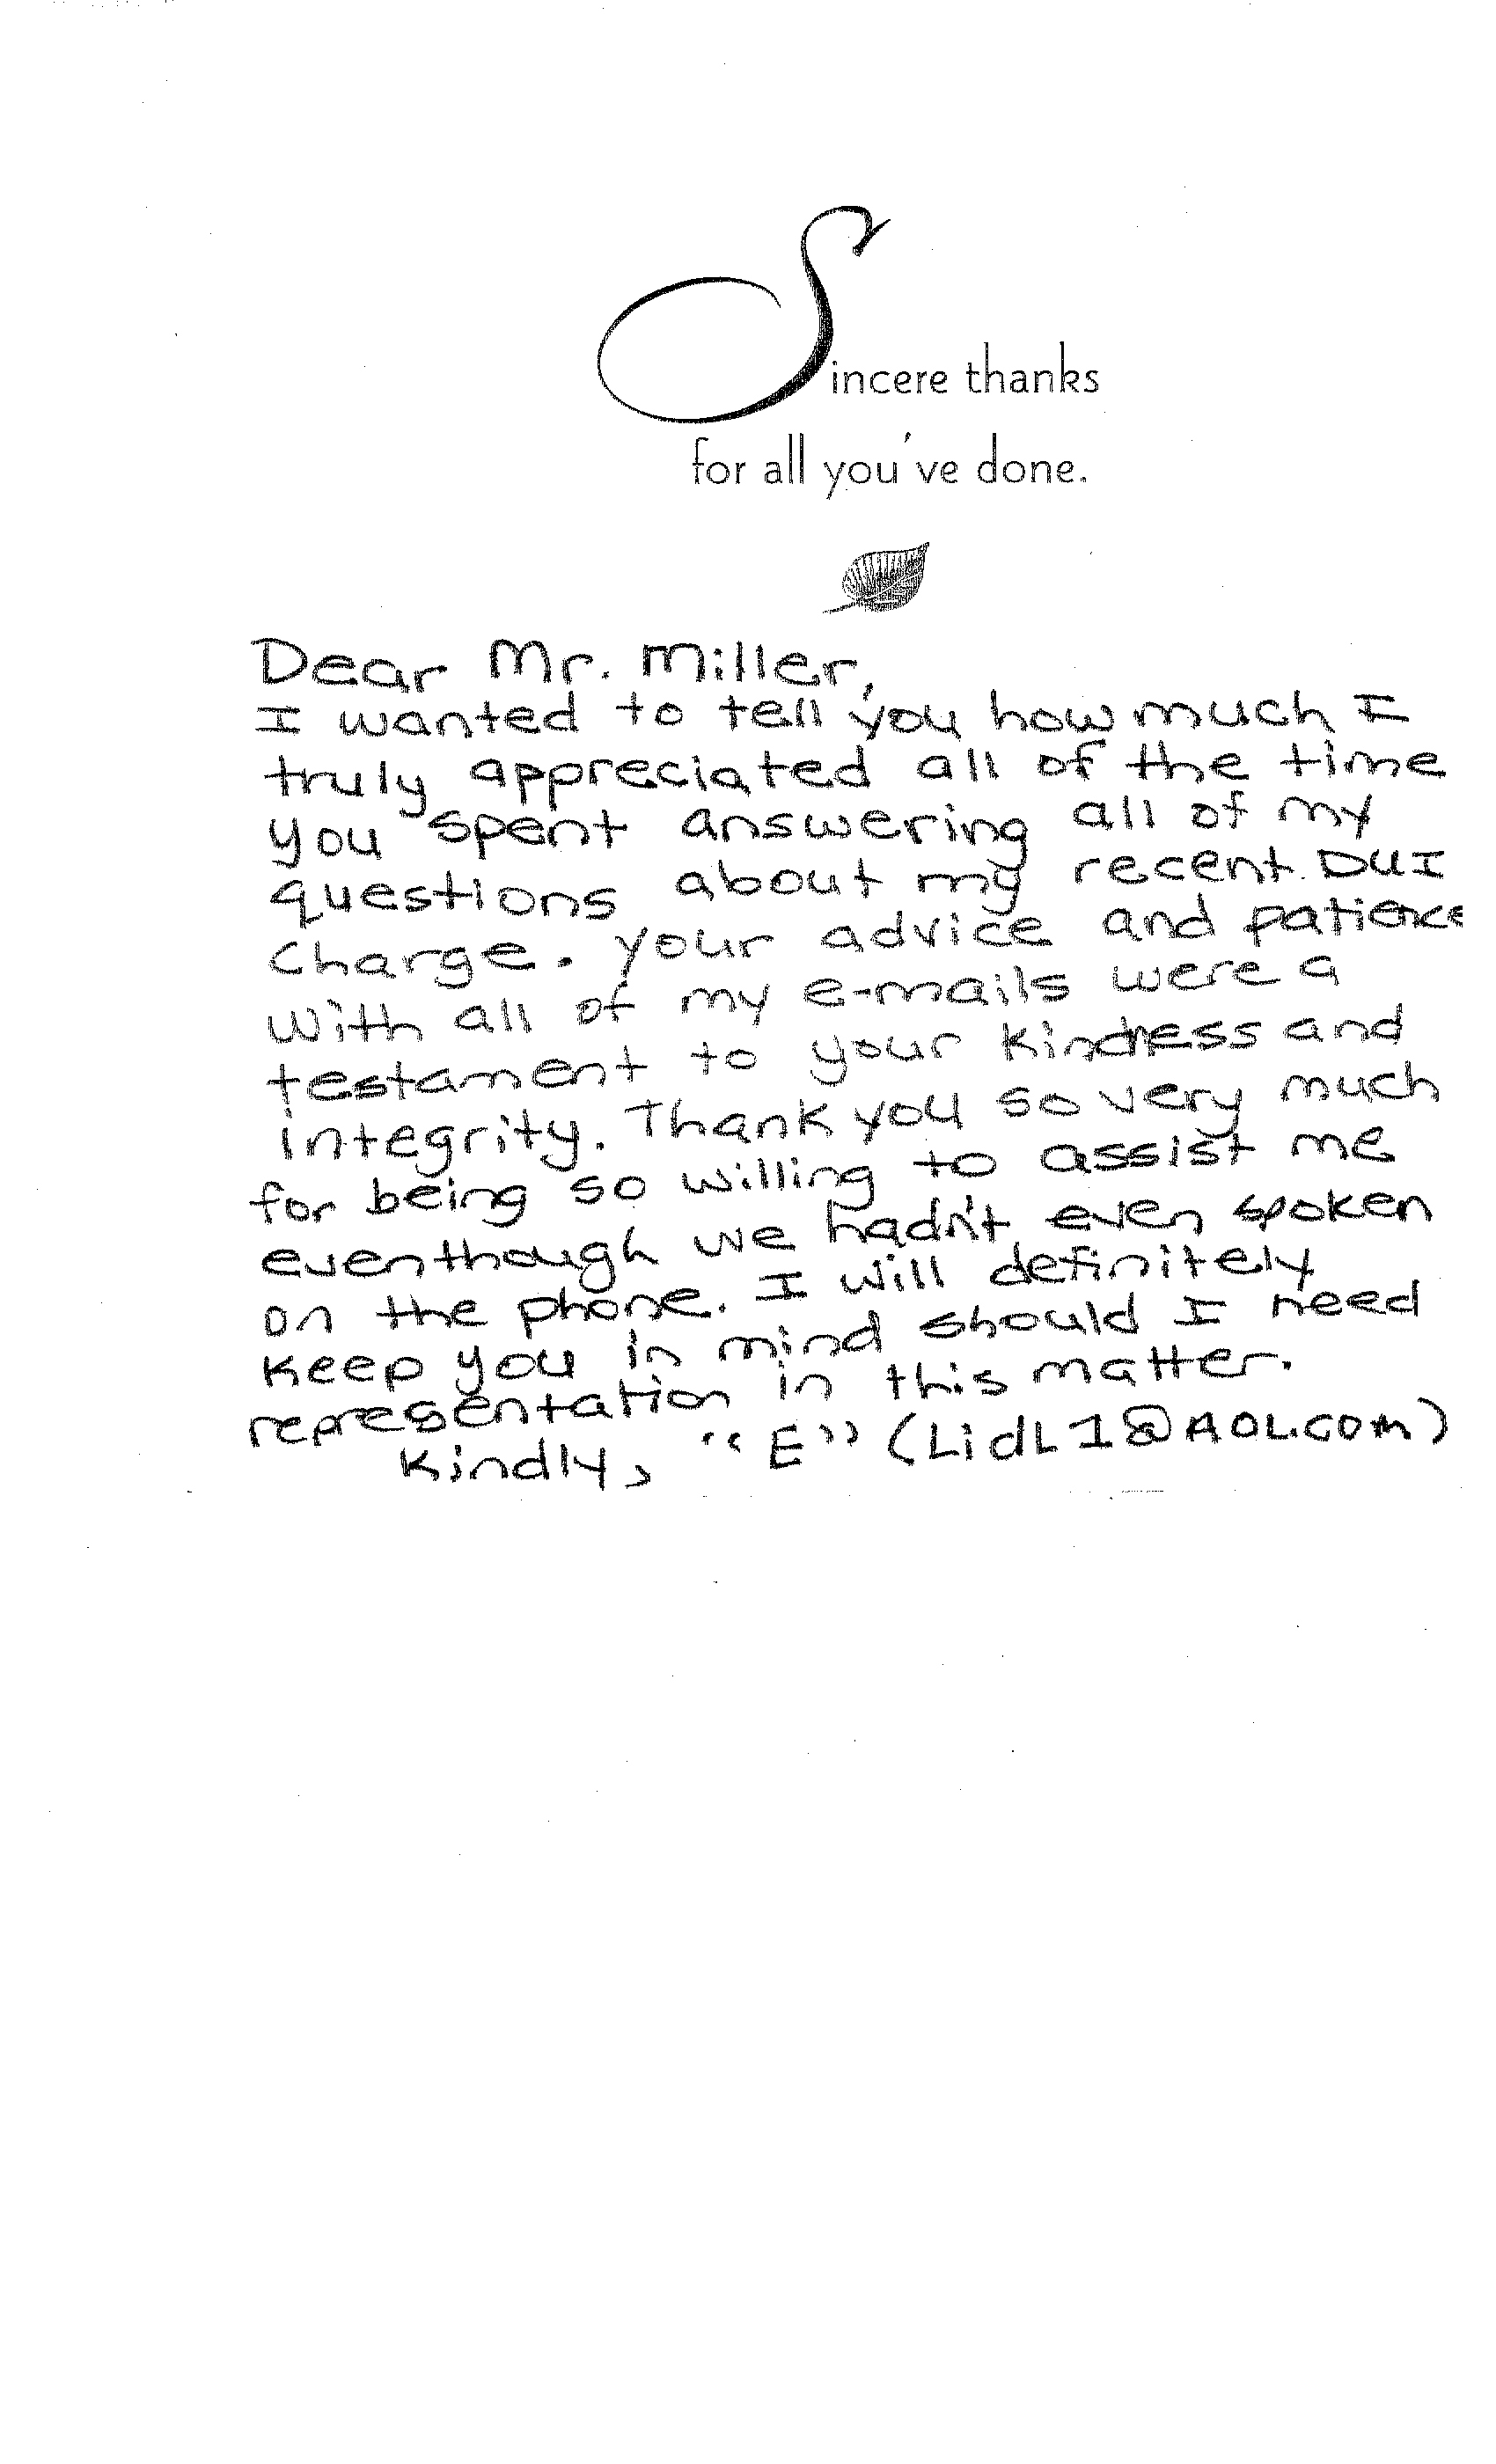 Sincere thanks
for all you've done.
Dear Mr. Miller,
I wanted to tell you how much I
truly appreciated all of the time
you spent answering all of my
questions about my recent DUI
charge. Your advice and patience
with all of my e-mails were a
testament to your kindness and
integrity. Thank you so very much
for being so willing to assist me
eventhough we hadn't even spoken
on the phone. I will definitely
keep you in mind should I need
representation in this matter.
Kindly, "E" (LidL1@AOL.COM)